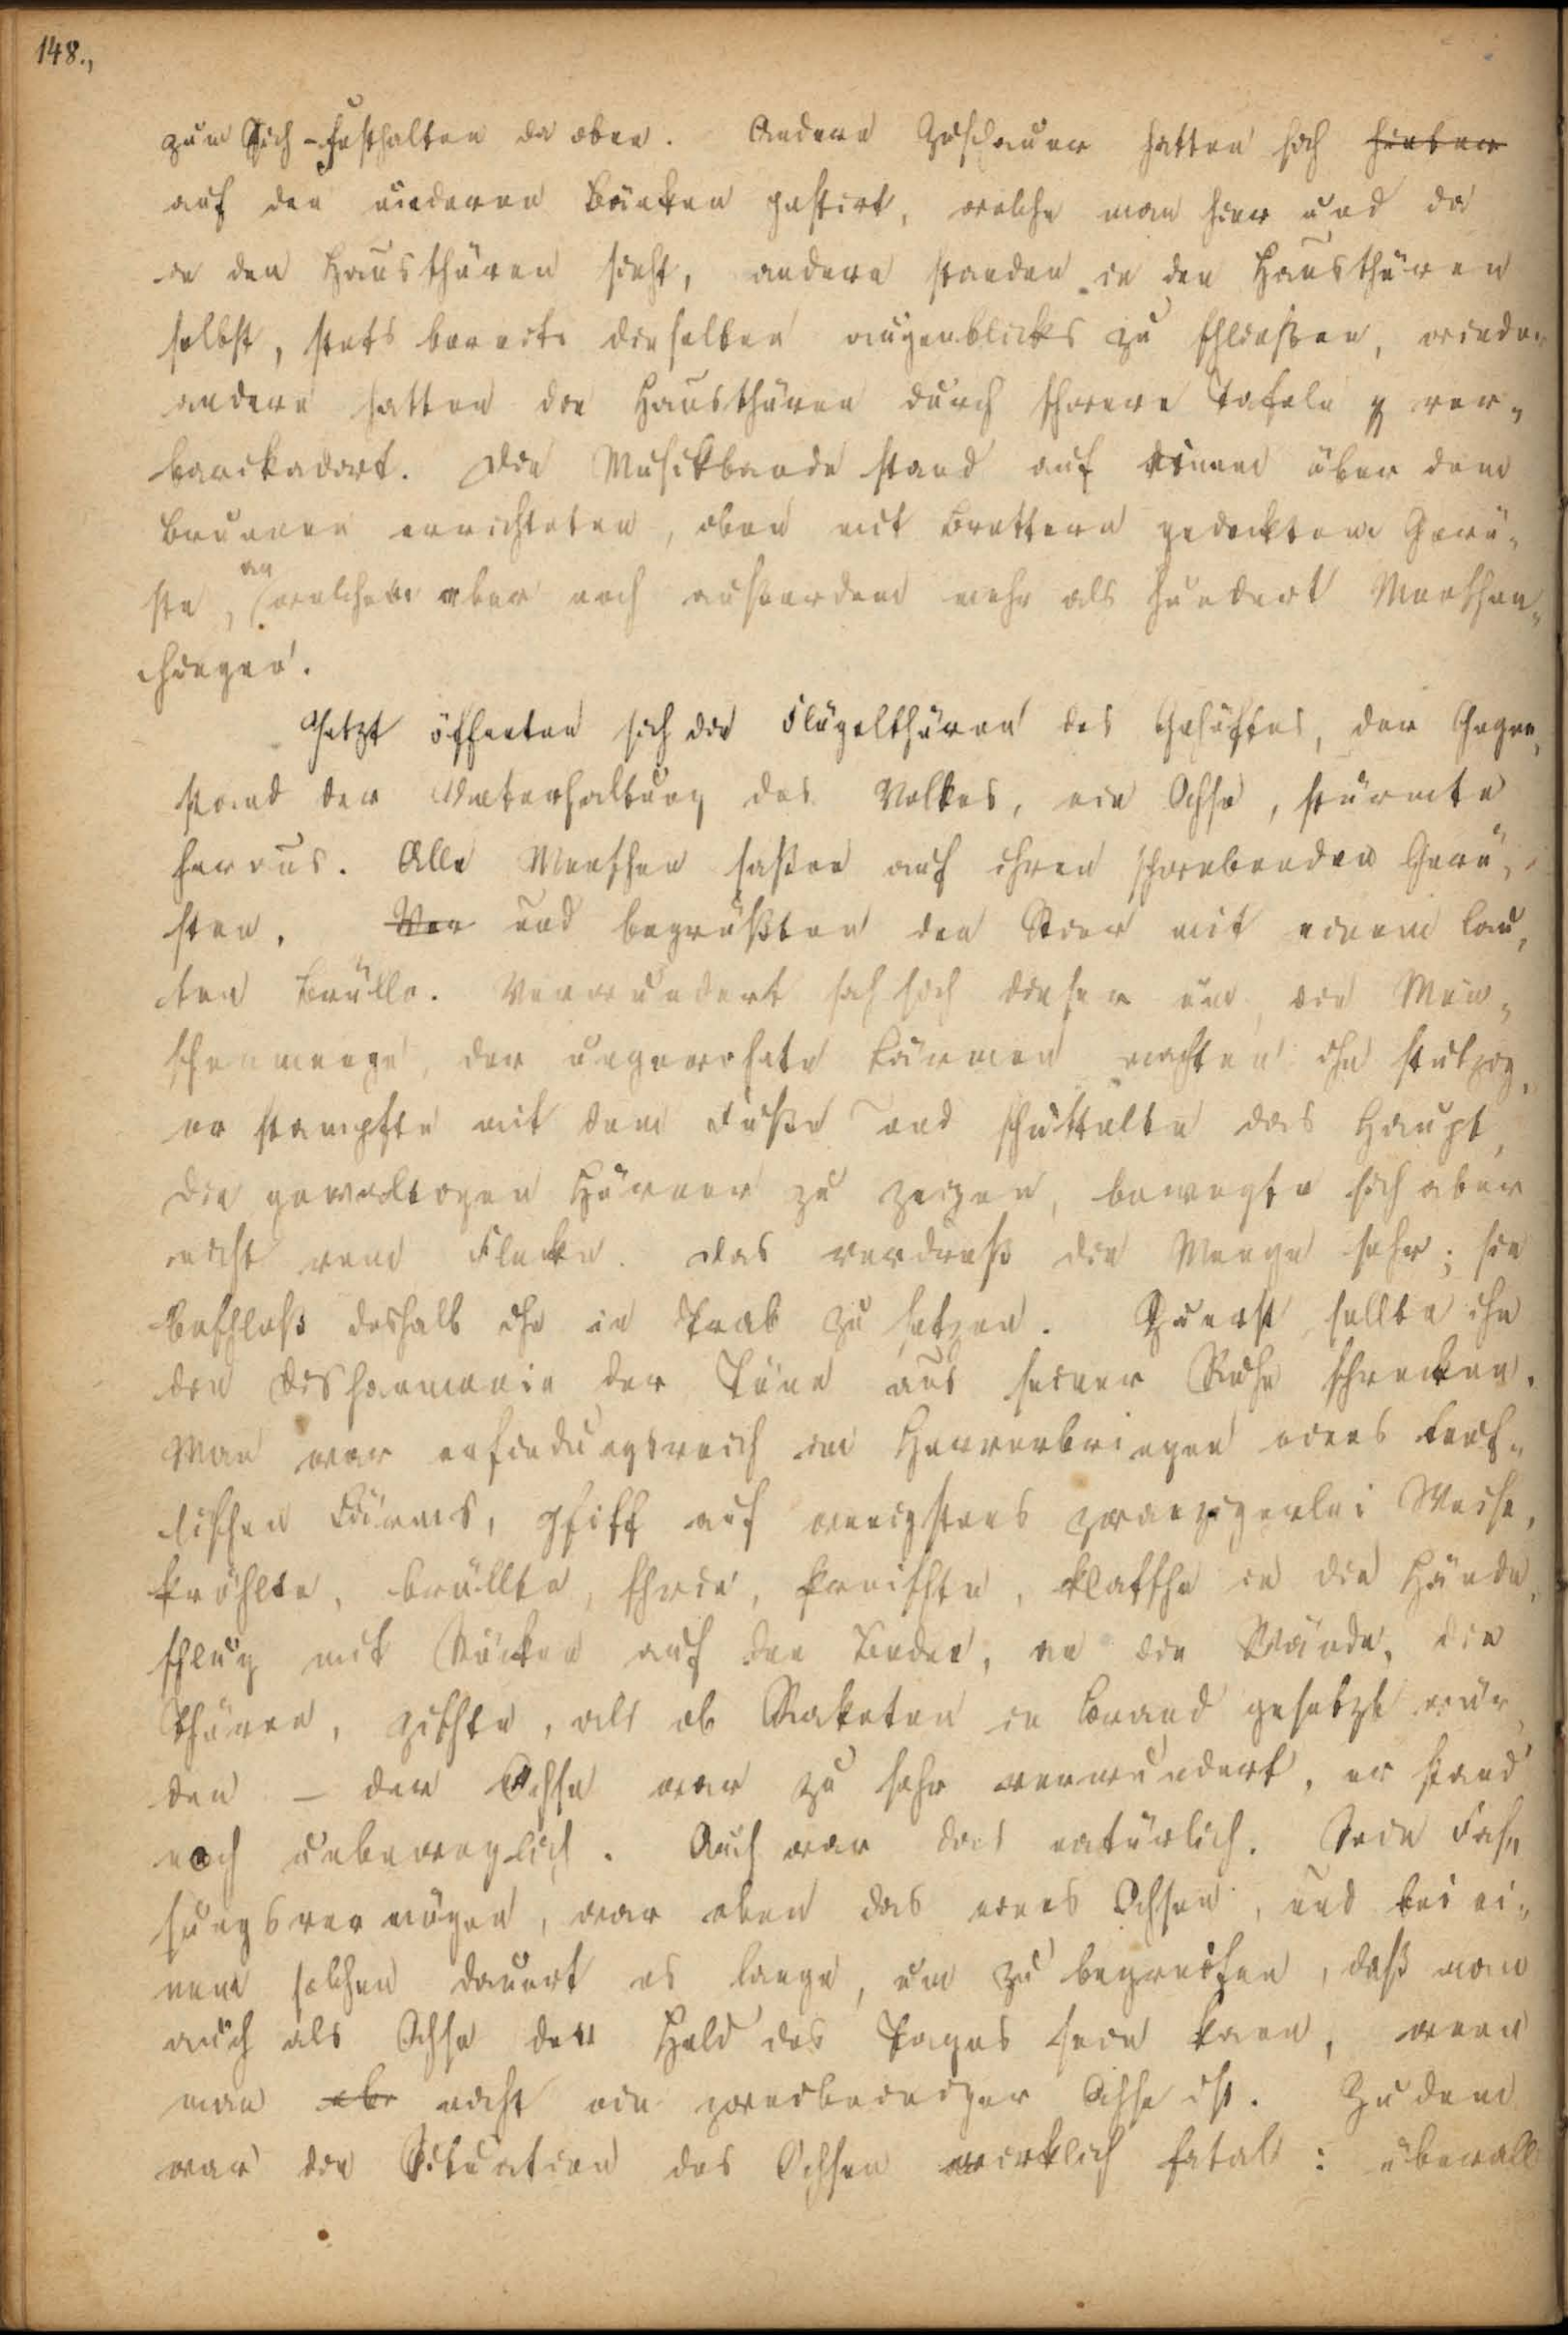 148.,
zum Sich-Festhalten da oben. Andere Zuschauer hatten sich hinter
auf den niederen Bänken postirt, welche man hier und da
in den Hausthüren sieht, andere standen in den Hausthüren
selbst, stets bereit dieselben augenblicks zu schließen, wieder
andere hatten die Hausthüren durch schwere Tafeln ver-
barickadirt. Die Musikbande stand auf einem über dem
Brunnen errichteten, oben mit Brettern gedecktem Gerü-
ste, an welchem aber noch außerdem mehr als hundert Menschen
hingen.
Jetzt öffneten sich die Flügelthüren des Gehöftes, der Gegen-
stand der Unterhaltung des Volkes, ein Ochse, stürmte
heraus. Alle Menschen saßen auf ihren schwebenden Gerü-
sten, Von und begrüßten den Stier mit einem lau-
ten Brülle. Verwundert sah sich dieser um, die Men-
schenmenge, der ungewohnte Lärmen machten ihn stutzig,
er stampfte mit dem Fuße und schüttelte das Haupt,
die gewaltigen Hörner zu zeigen, bewegte sich aber
nicht vom Flecke. Das verdroß die Menge sehr; sie
beschloß deshalb ihn in Trab zu setzen. Zuerst sollte ihn
die Disharmonie der Töne aus seiner Ruhe schrecken.
Man war erfindungsreich im Hervorbringen eines teuf-
lischen Lärms, pfiff auf wenigstens zwanzigerlei Weise,
kröhlte, brüllte, schrie, kreischte, klatschte in die Hände,
schlug mit Stöcken auf den Boden, an die Wände, die
Thüren, zischte, als ob Raketen in Brand gesetzt wür-
den – der Ochse war zu sehr verwundert, er stand
noch unbeweglich. Auch war das natürlich. Sein Fas-
sungsvermögen, war eben das eines Ochsen, und bei ei-
nem solchen dauert es lange, um zu begreifen, daß man
auch als Ochse der Held des Tages sein kann, wenn
man abr nicht ein zweibeiniger Ochse ist. Zudem
war die Situation des Ochsen wirklich fatal: überall